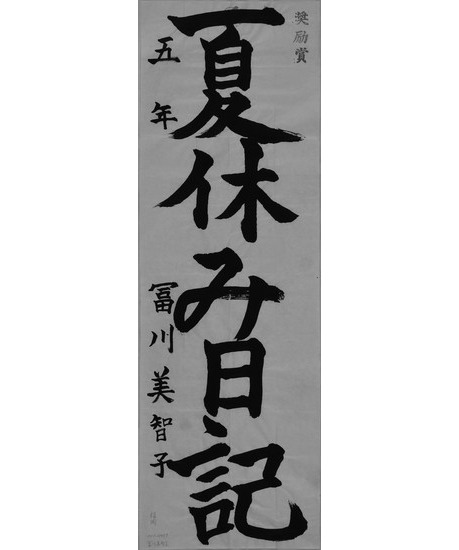 奨励賞
夏休み日記
五年 冨川美智子